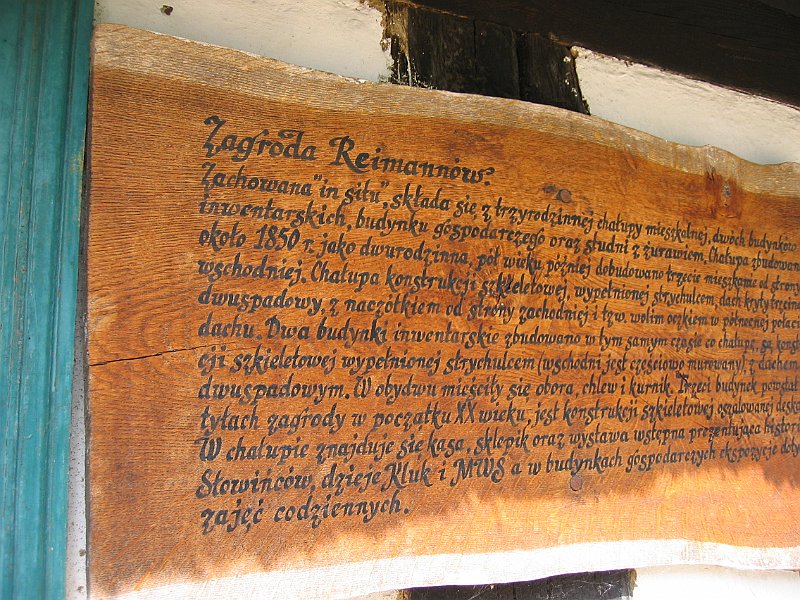 Zagroda Reimannów.
Zachowana "in situ", składa się z trzyrodzinnej chałupy mieszkalnej, dwóch budynków
inwentarskich, budynku gospodarczego oraz studni z żurawiem. Chałupa zbudowan
około 1850 r. jako dwurodzinna, pół wieku później dobudowano trzecie mieszkanie od strony
wschodniej. Chałupa konstrukcji szkieletowej, wypełnionej strychulcem, dach kryty trzcin
dwuspadowy, z naczółtkiem od strony zachodniej i tzw. wolim oczkiem w północnej połaci
dachu. Dwa budynki inwentarskie zbudowano w tym samym czasie co chałupę, są konst
cji szkieletowej wypełnionej strychulcem (wschodni jest częściowo murowany), z dachem
dwuspadowym. W obydwu mieściły się obora, chlew i kurnik. Trzeci budynek powstał
tyłach zagrody w początku XX wieku, jest konstrukcji szkieletowej oszalowanej deska
W chałupie znajduje się kasa, sklepik oraz wystawa wstępna prezentująca histor
Słowińców, dzieje Kluk i MWS a w budynkach gospodarczych ekspozycje doty
zajęć codziennych.